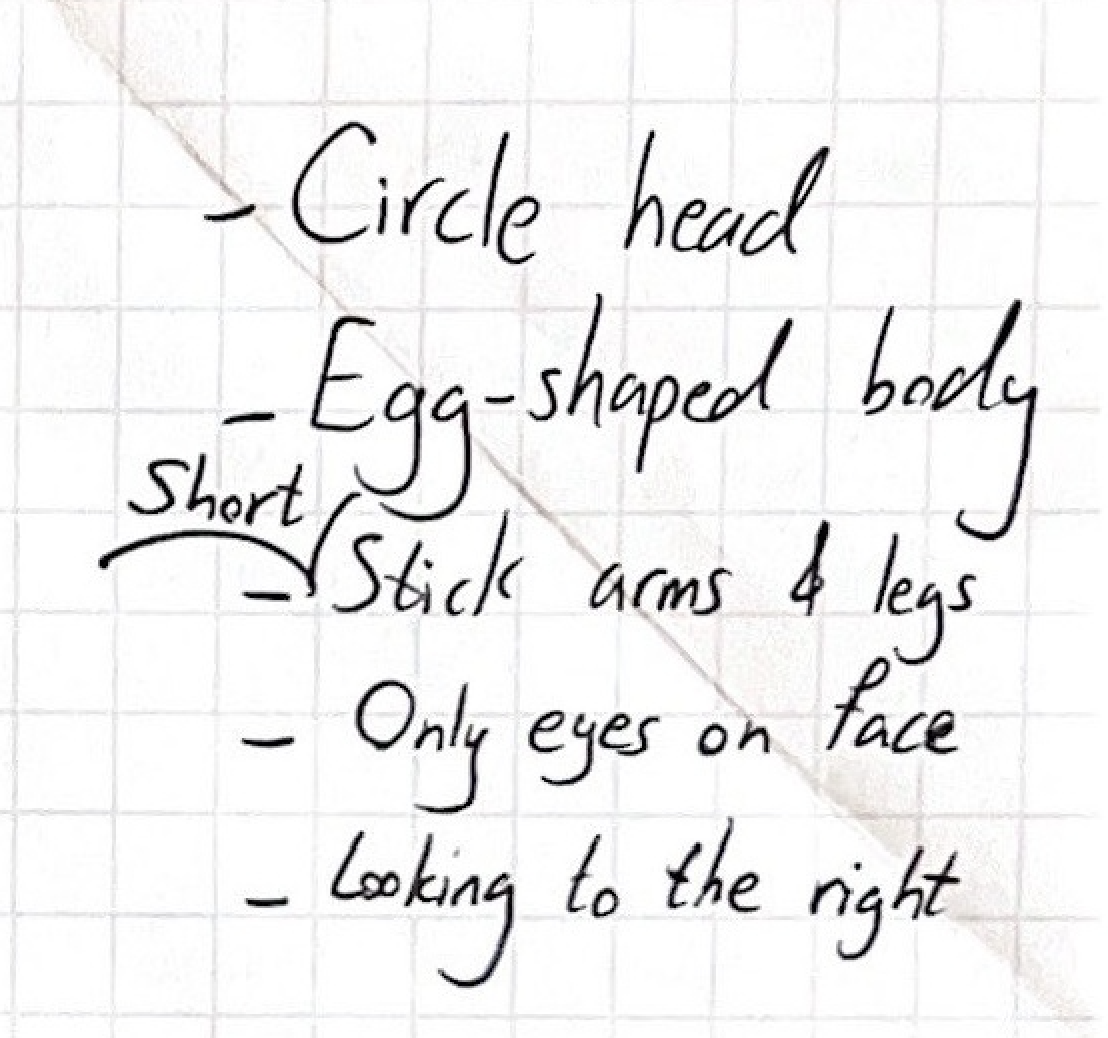 - Circle head
- Egg-shaped body
- Short Stick arms & legs
- Only eyes on face
- Looking to the right